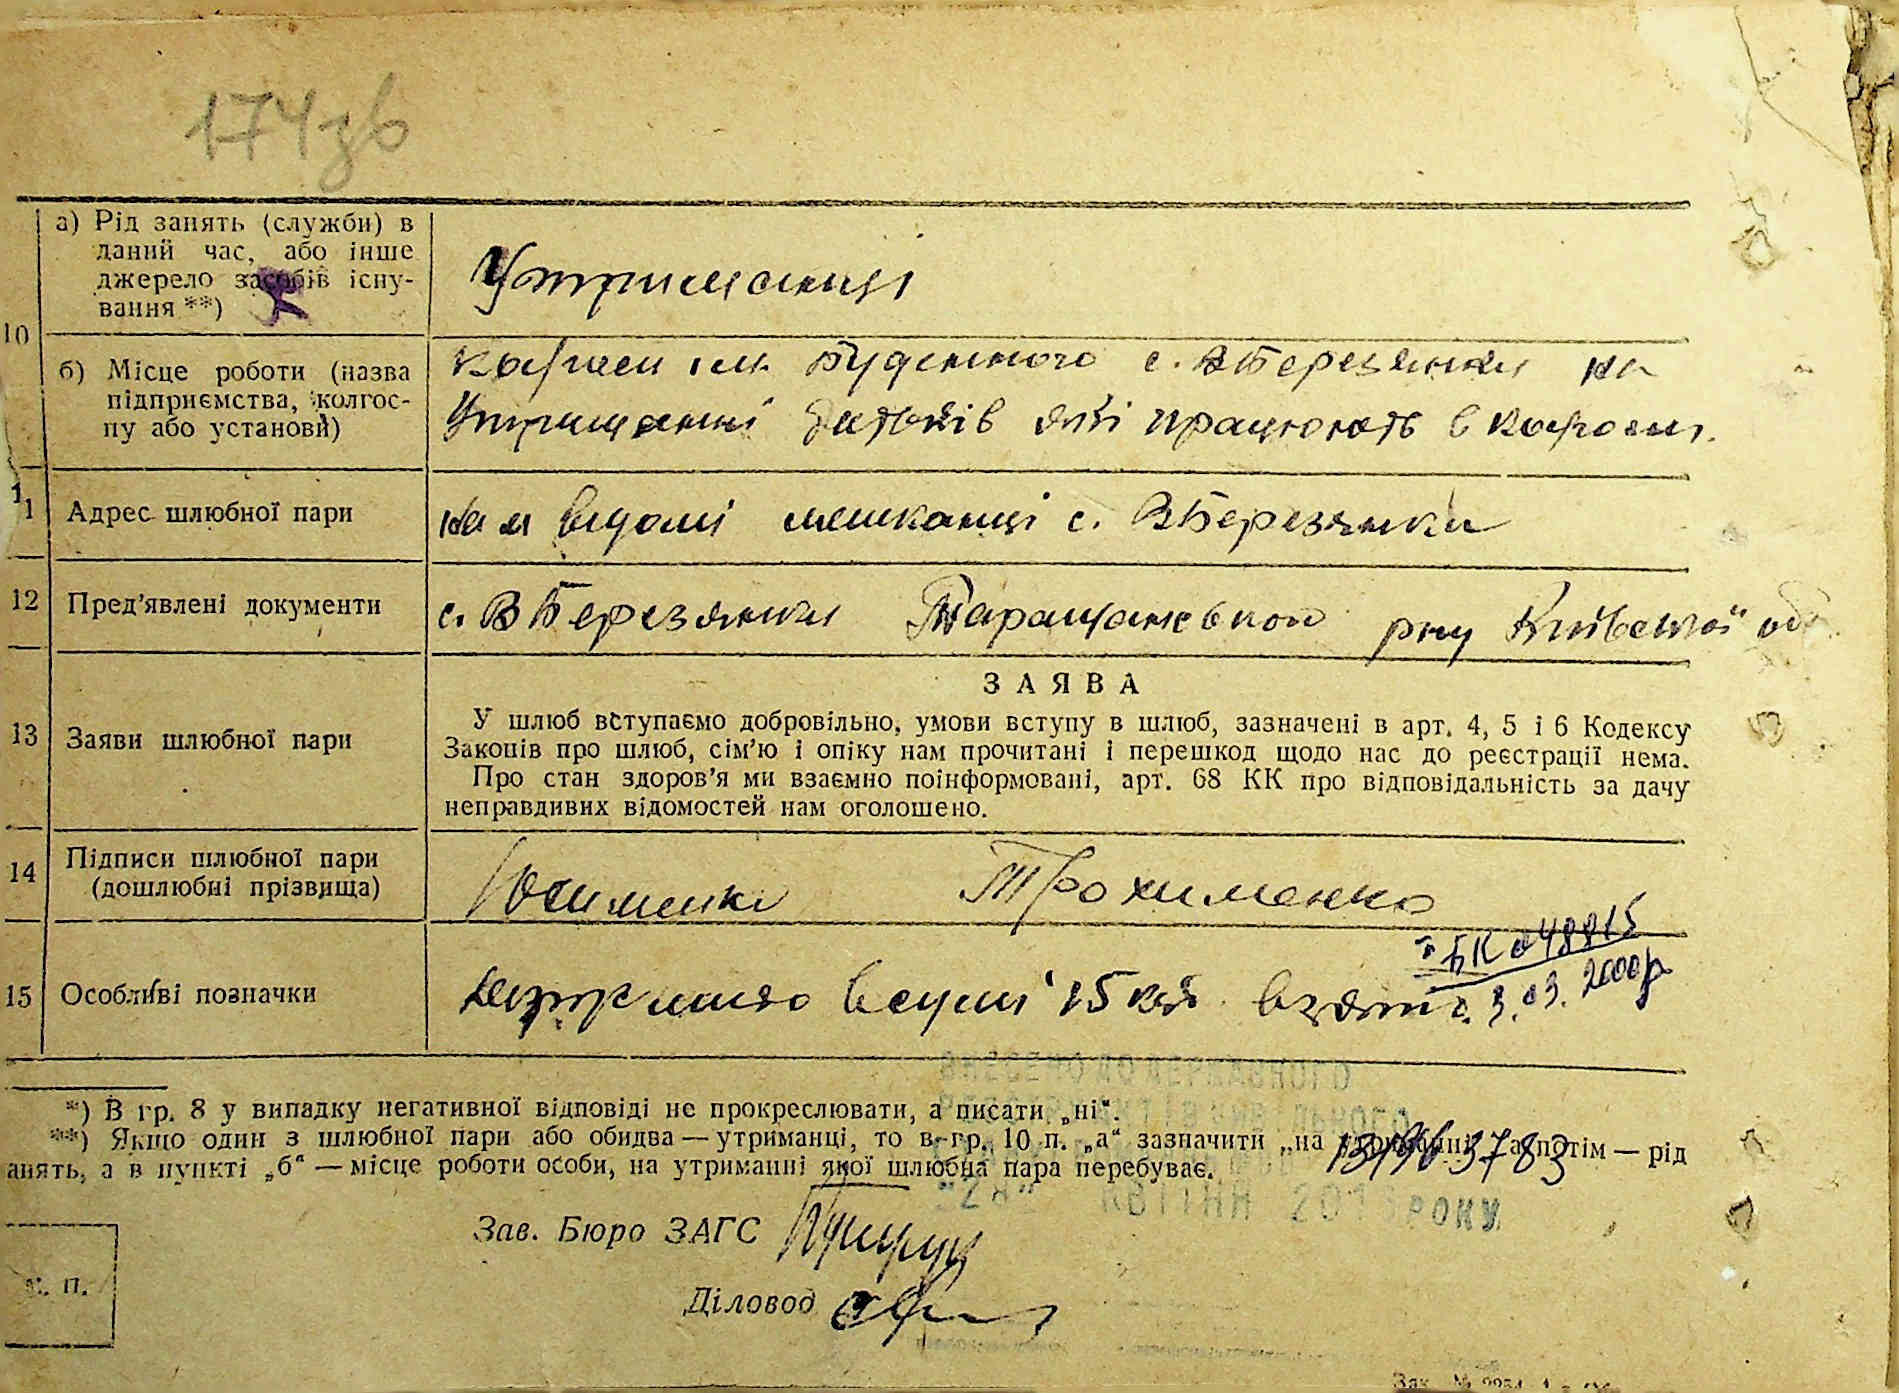 174зв
а) Рід занять (служби) в
даний час, або інше
джерело засобів існу-
вання **)
Утриманці
10
б) Місце роботи (назва
підприємства, колгос-
пу або установи)
колгосп ім. Буденного с. ВБерезянки на
Утриманні батьків які працюють в колгоспі.
11
Адрес шлюбної пари
відомі мешканці с. ВБерезянки
12
Пред'явлені документи
с. ВБерезянки Таращанського р-ну Київської об
13
Заяви шлюбної пари
ЗАЯВА
У шлюб вступаємо добровільно, умови вступу в шлюб, зазначені в арт. 4, 5 і 6 Кодексу
Законів про шлюб, сім'ю і опіку нам прочитані і перешкод щодо нас до реєстрації нема.
Про стан здоров'я ми взаємно поінформовані, арт. 68 КК про відповідальність за дачу
неправдивих відомостей нам оголошено.
14
Підписи шлюбної пари
(дошлюбні прізвища)
Трохименко
15
Особливі позначки
в сумі 15 взято
БК 048815
3. 03. 2000р
ВНЕСЕНО ДО ДЕРЖАВНОГО
*) В гр. 8 у випадку негативної відповіді не прокреслювати, а писати „ні“.
**) Якщо один з шлюбної пари або обидва — утриманці, то в гр. 10 п. „а“ зазначити „на утриманні“, а потім — рід
анять, а в пункті „б“ — місце роботи особи, на утриманні якої шлюбна пара перебуває.
КВІТНЯ 2013 РОКУ
Зав. Бюро ЗАГС
М. П.
Діловод